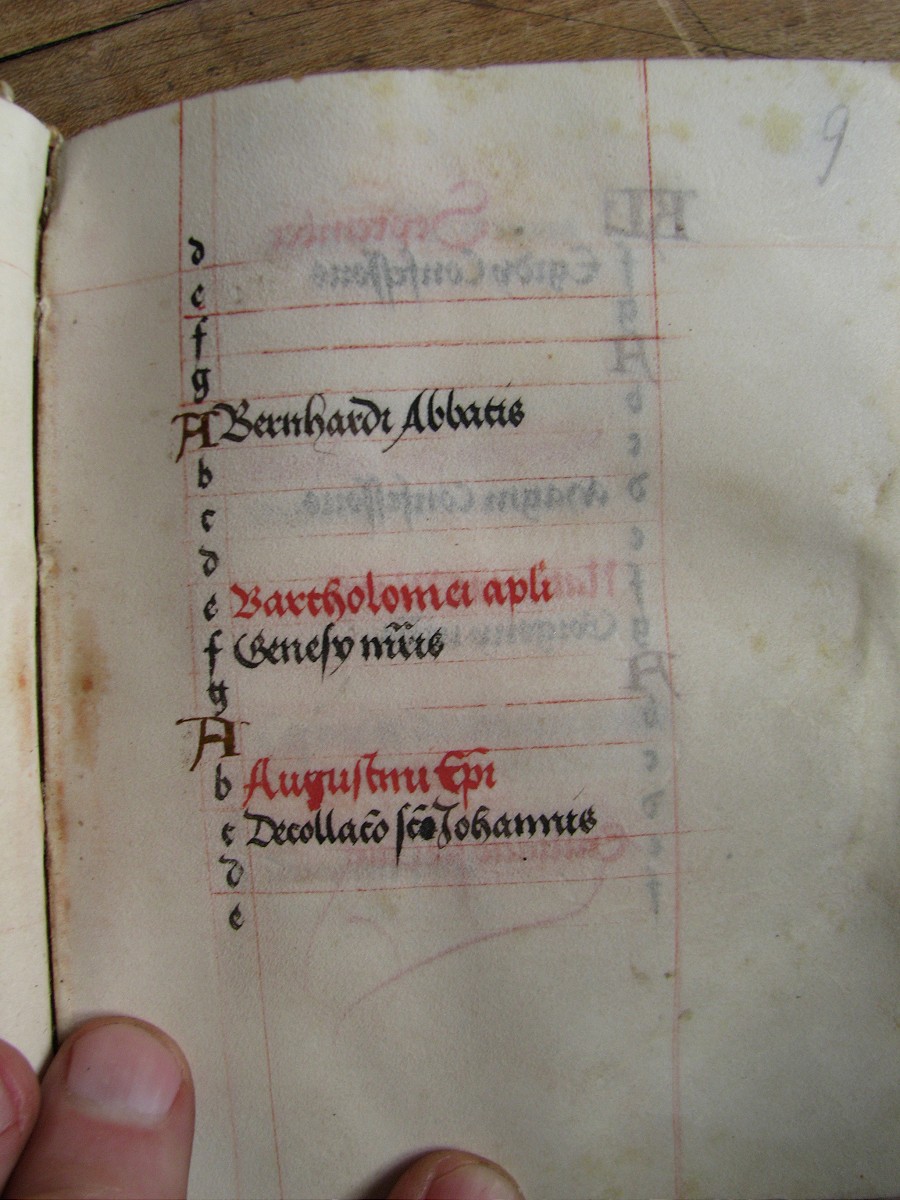 9
d
e
f
g
A Bernhardi Abbatis
b
c
d
e Bartholomei apli
f Genesy mr̃is
g
A
b Augustini Ep̄i
c Decollac̃o sc̃i Johannis
d
e